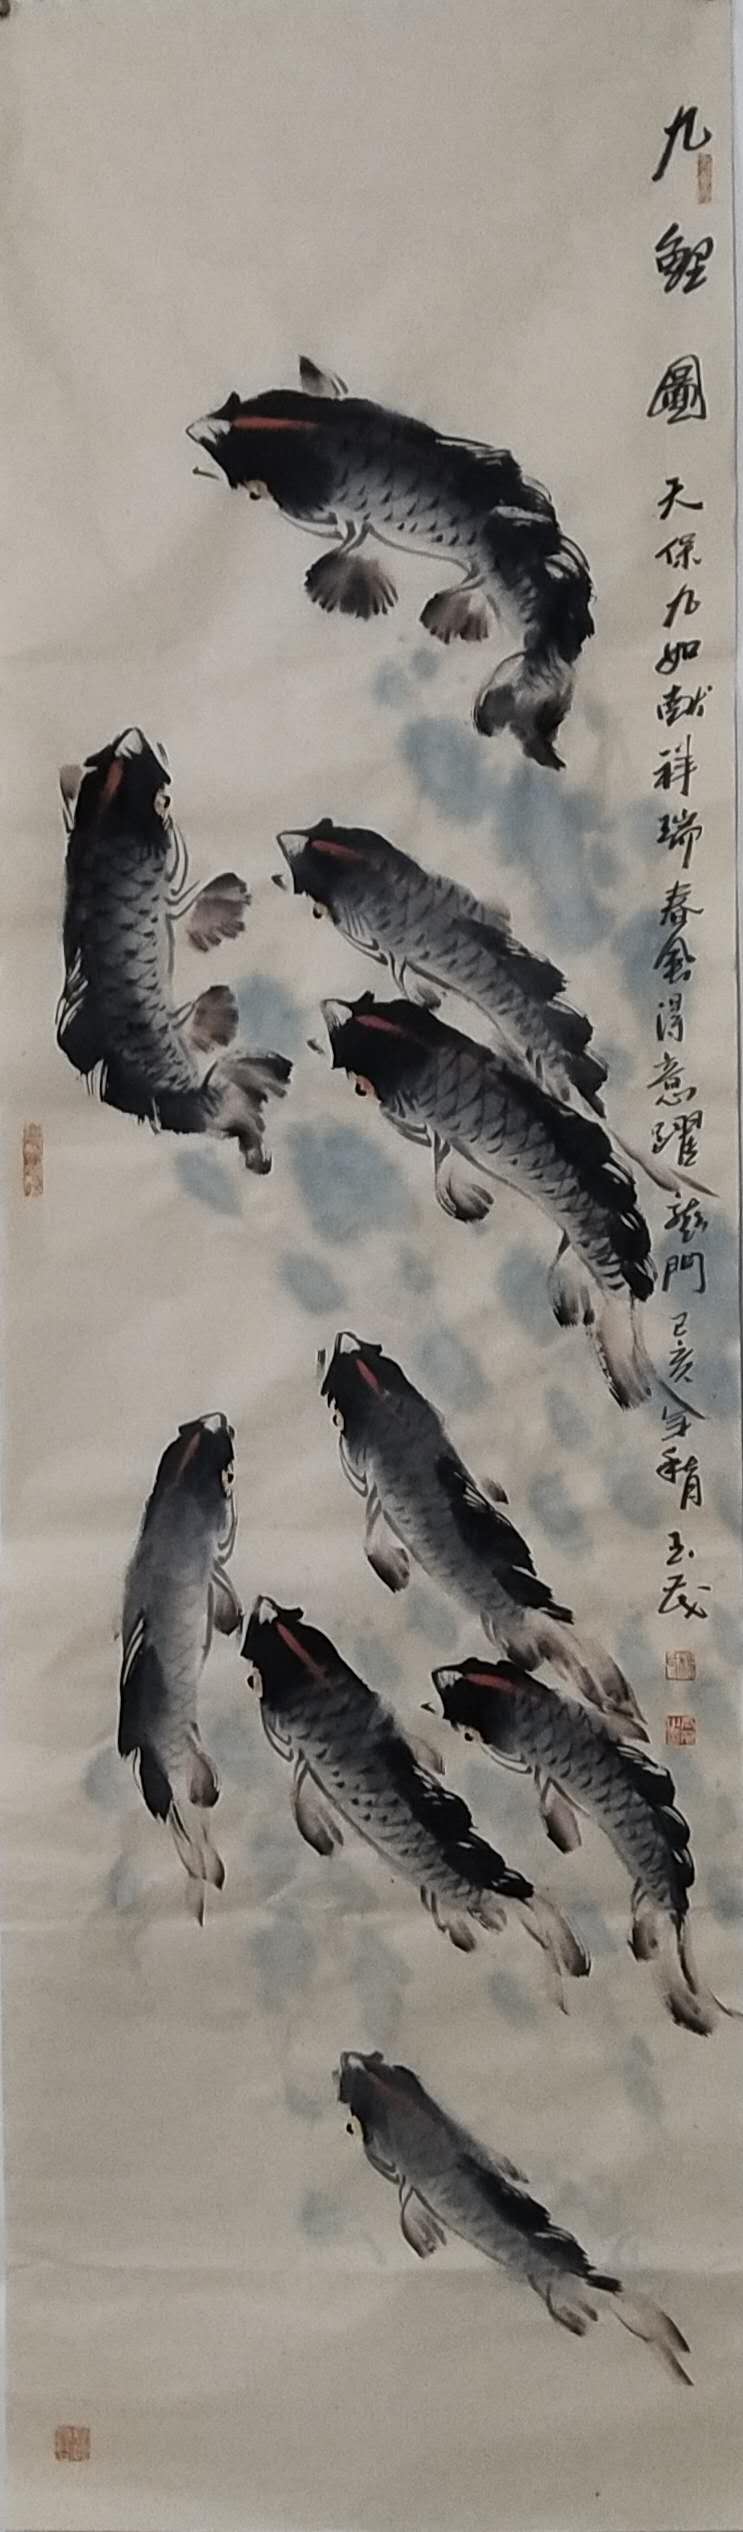 九鲤圖 天保九如献祥瑞春風得意躍龍門 己亥年 玉茂